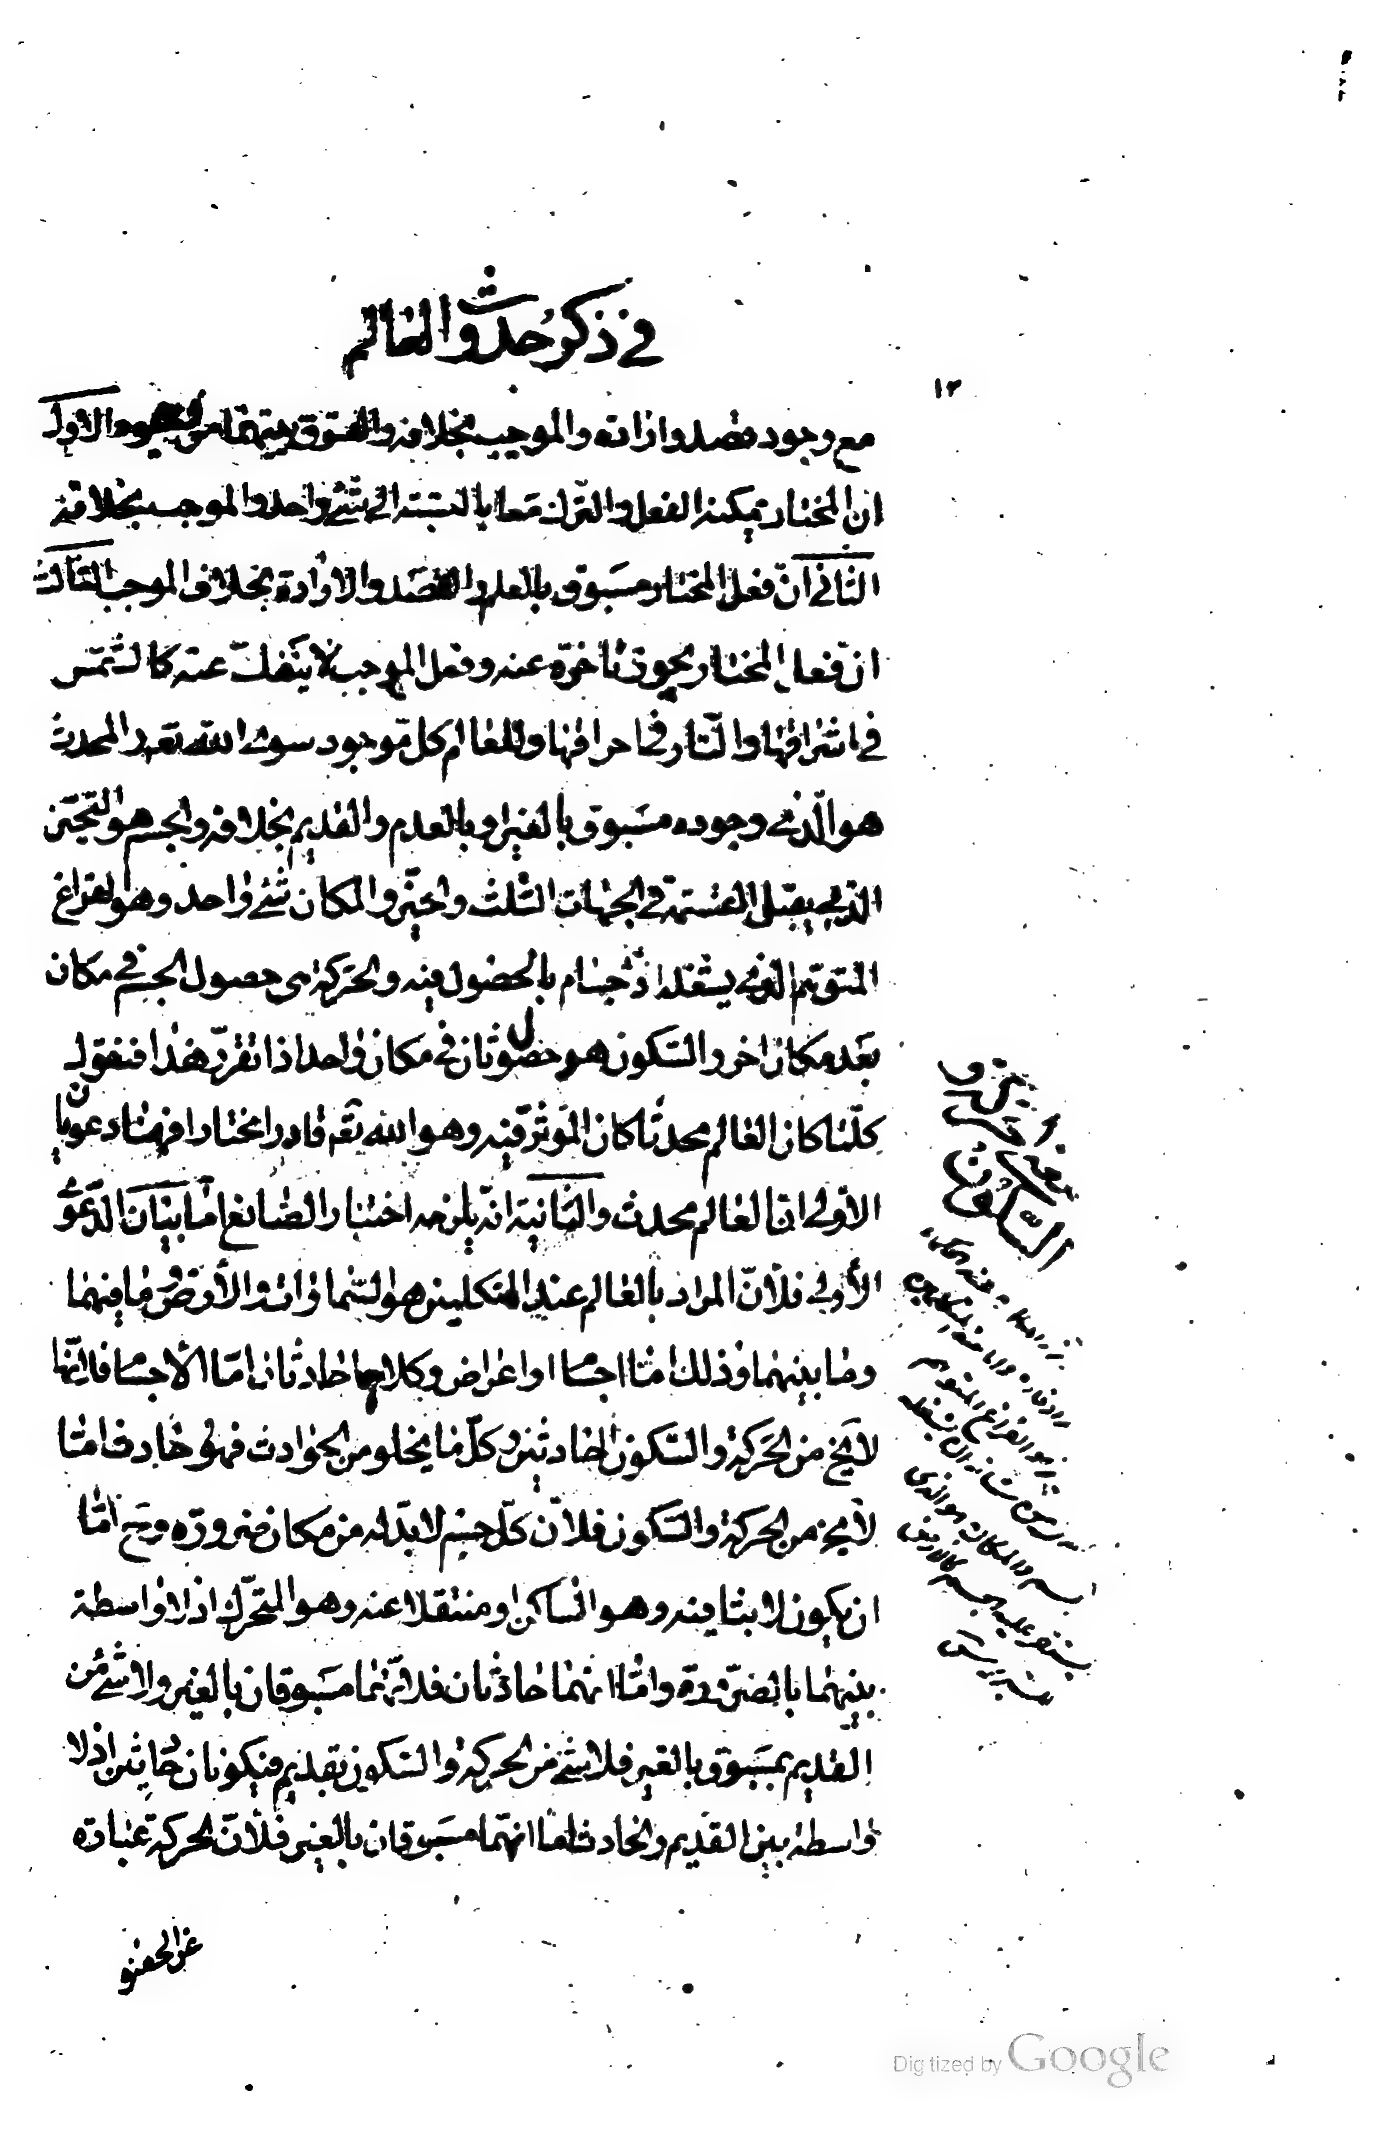 في ذكر حدوث العالم
١٣
مع وجود قصد وارادته والموجب بخلافه والفرق بينهما من وجوه الاول
ان المختار يمكنه الفعل والترك معا بالنسبة الى شئ واحد والموجب بخلافه
الثاني انّ فعل المختار مسبوق بالعلم والقصد والارادة بخلاف الموجب الثالث
انّ فعل المختار يجوز تاخرّه عنه وفعل الموجب لا ينفكّ عنه كالشمس
في اشراقها والنّار في احراقها والعالم كل موجود سوى الله تعه والمحدث
هو الّذي وجوده مسبوق بالغير او بالعدم والقديم بخلافه والجسم هو المتحيّز
الذي يقبل القسمة في الجهات الثلث والحيّز والمكان شئ واحد وهو الفراغ
المتوهّم الذي يشغله الاجسام بالحصول فيه والحركة هي حصول الجسم في مكان
بعد مكان اخر والسّكون هو حصول ثان في مكان واحد اذا تقرّر هذا فنقول
كلّما كان العالم محدثا كان المؤثر فيه وهو الله تعه قادرا مختارا فهنا دعويان
الاولى ان العالم محدث والثانية انّه يلزمه اختيار الصّانع امّا بيان الدّعوى
الأولى فلأنّ المراد بالعالم عند المتكلمين هو السّموات والأرض وما فيهما
وما بينهما وذلك امّا اجسام او اعراض وكلاهما حادثان امّا الأجسام فانّها
لا يخ من الحركة والسّكون الحادثين وكلّ ما يخلو من الحوادث فهو حادث امّا
لا يخ من الحركة والسّكون فلانّ كلّ جسم لا بدّ له من مكان ضرورة وح امّا
ان يكون لابثا فيه وهو السّاكن او منتقلا عنه وهو المتحرّك اذ لا واسطة
بينهما بالضّرورة وامّا انّهما حادثان فلانّهما مسبوقان بالغير ولا شئ من
القديم بمسبوق بالغير فلا شئ من الحركة والسّكون بقديم فيكونان حادثين اذ لا
واسطة بين القديم والحادث امّا انّهما مسبوقان بالغير فلأنّ الحركة عبارة
السّكون
هو الفراغ المتوهم
والمكان هو الذي
يستقر عليه الجسم كالارض
عن الحصو
Digitized by Google